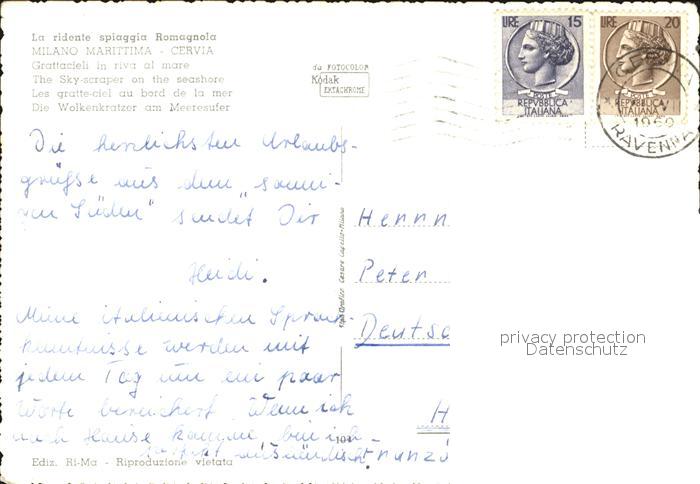 La ridente spiaggia Romagnola
MILANO MARITTIMA - CERVIA
Grattacieli in riva al mare
The Sky-scraper on the seashore
Les gratte-ciel au bord de la mer
Die Wolkenkratzer am Meeresufer
da FOTOCOLOR
Kodak
EKTACHROME
LIRE 15
POSTE
REPVBBLICA
ITALIANA
LIRE 20
POSTE
REPVBBLICA
ITALIANA
RAVENNA
Die herzlichsten Urlaubs-
grüße aus dem "sonni-
gen Süden" sendet Dir
Heidi.
Meine italienischen Sprach-
kenntnisse werden mit
jedem Tag um ein paar
Worte bereichert. Wenn ich
nach Hause komme bin ich
perfekt
Herrn
Peter
Deutsc
H
101
Ediz. Ri-Ma - Riproduzione vietata
privacy protection
Datenschutz